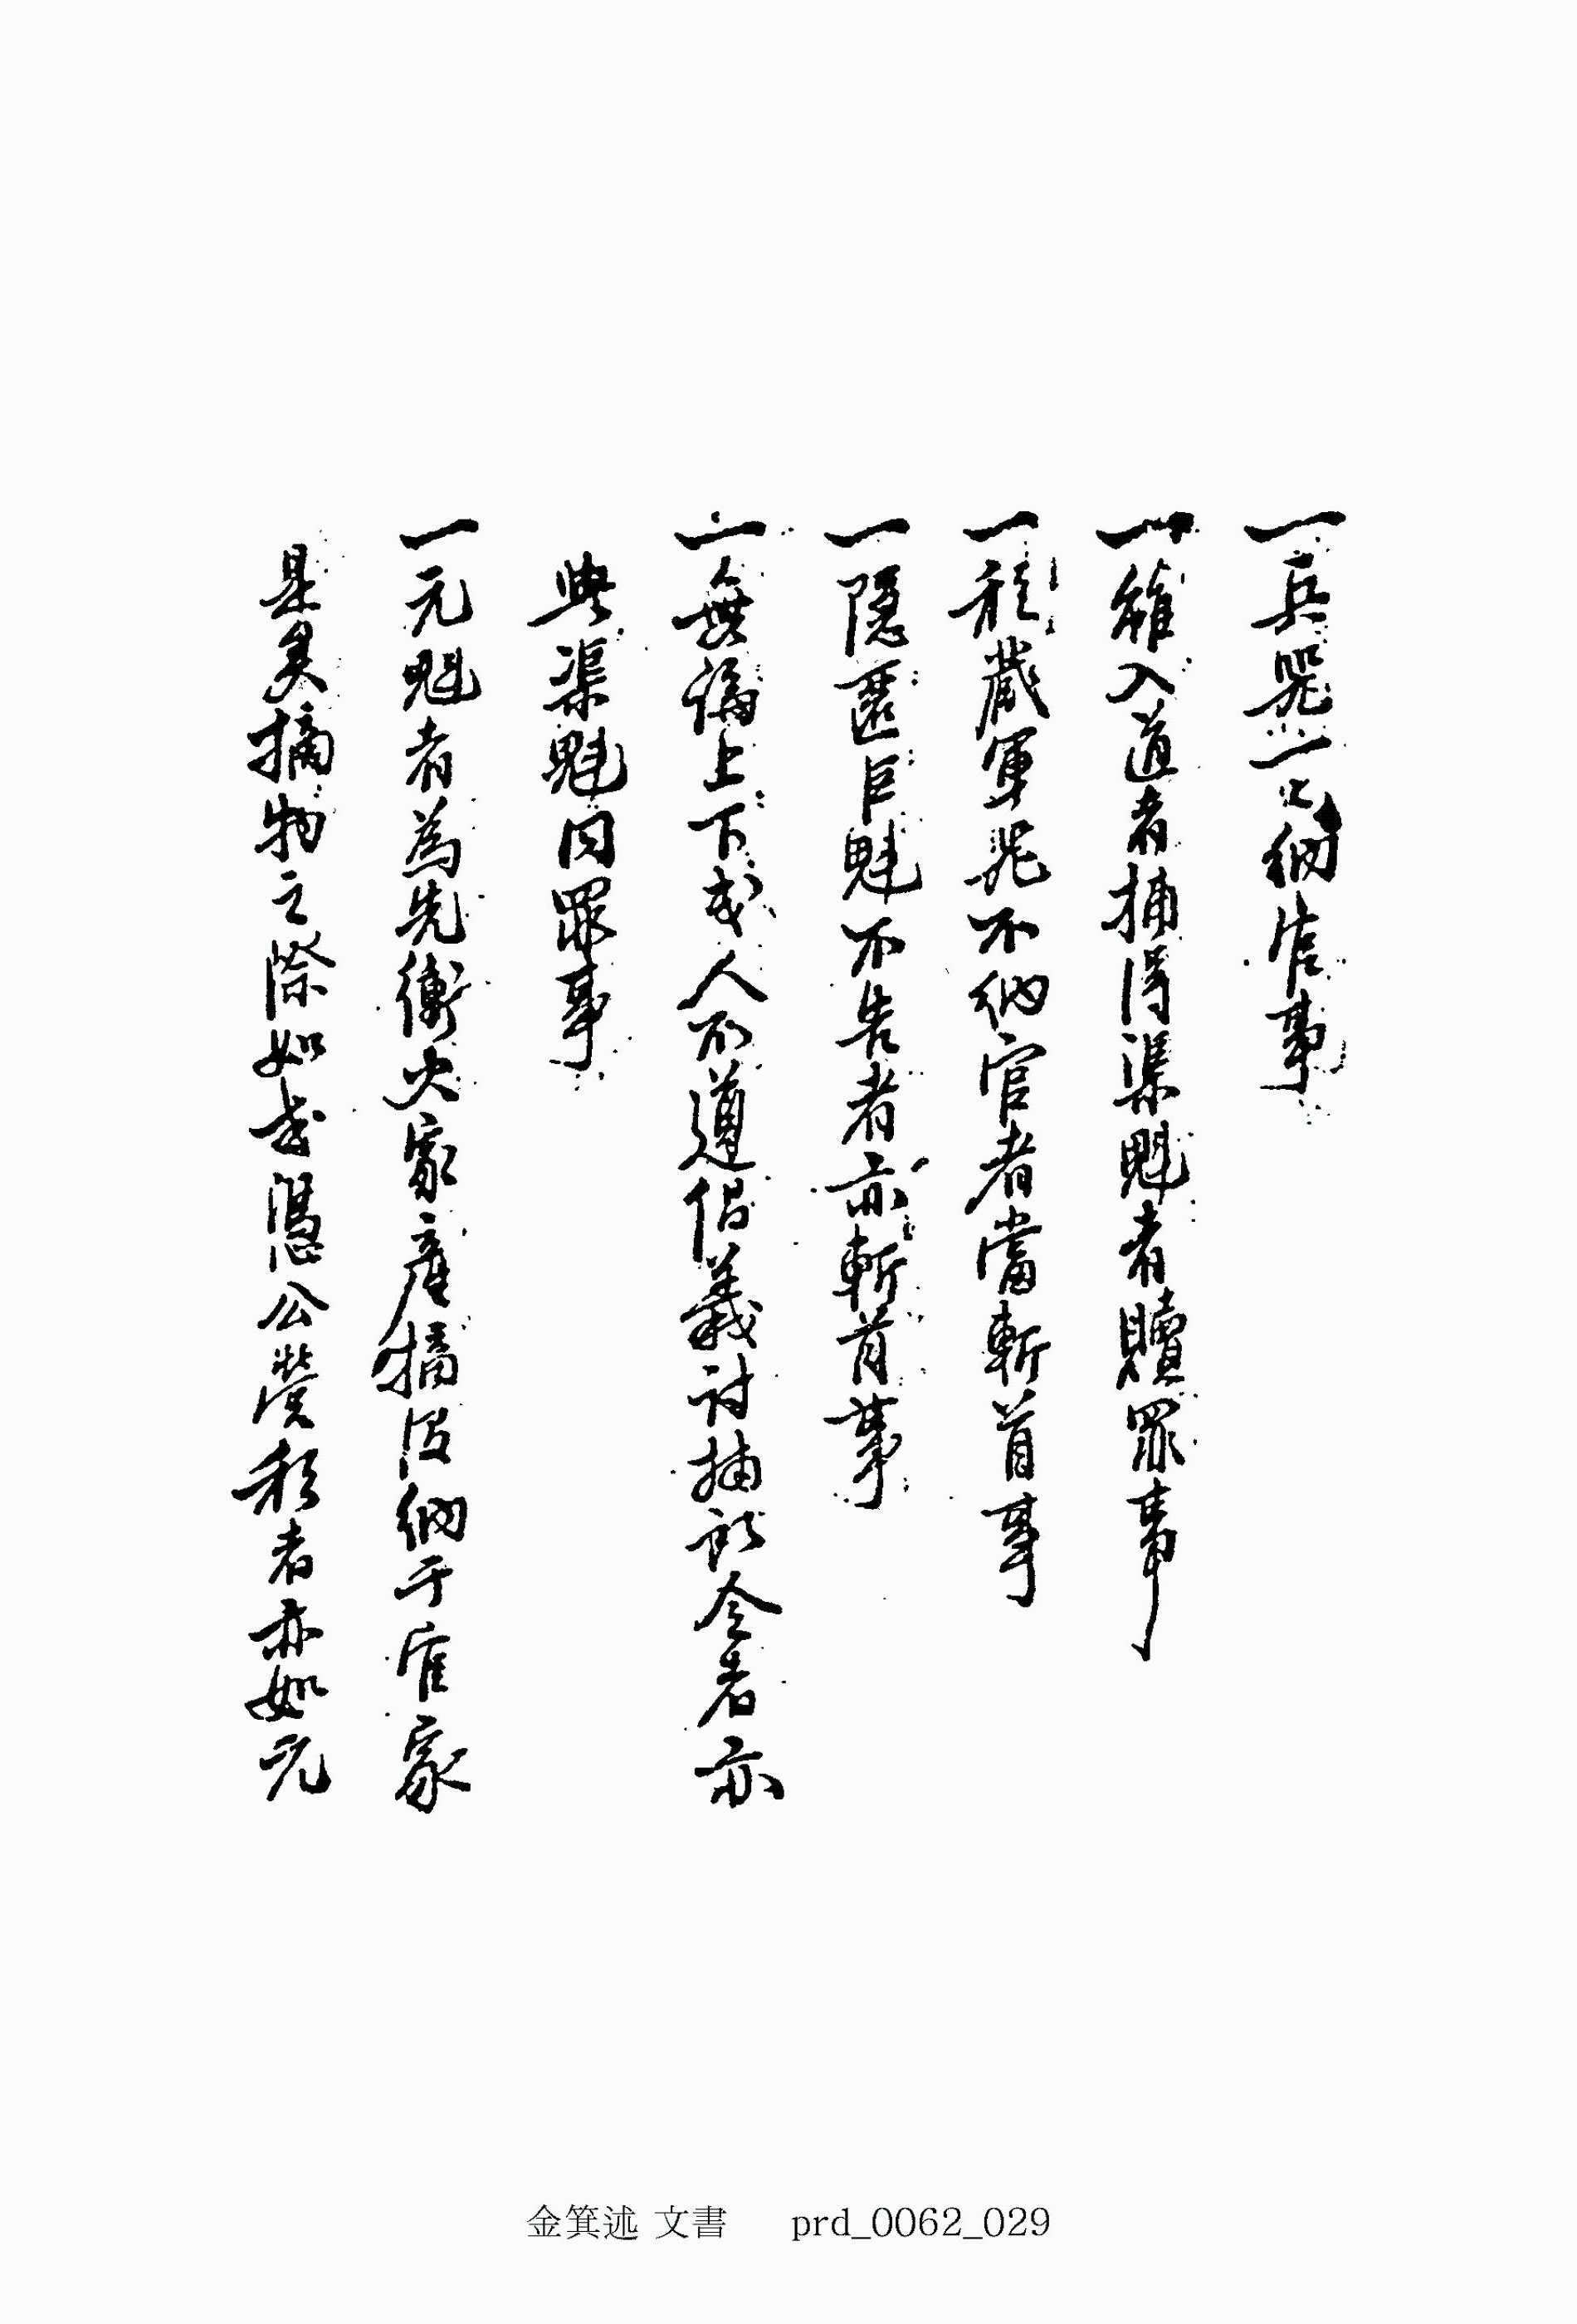 一兵器一一納官事
一雖入道者捕得渠魁者贖罪事
一私藏軍器不納官者當斬首事
一隱匿巨魁不告者亦斬首事
一無論上下或人不遵倡義討捕所令者亦
與渠魁同罪事
一元魁者爲先衝火家産摘沒納于官家
是矣摘物之際如或憑公營私者亦如元
金箕述 文書 prd_0062_029